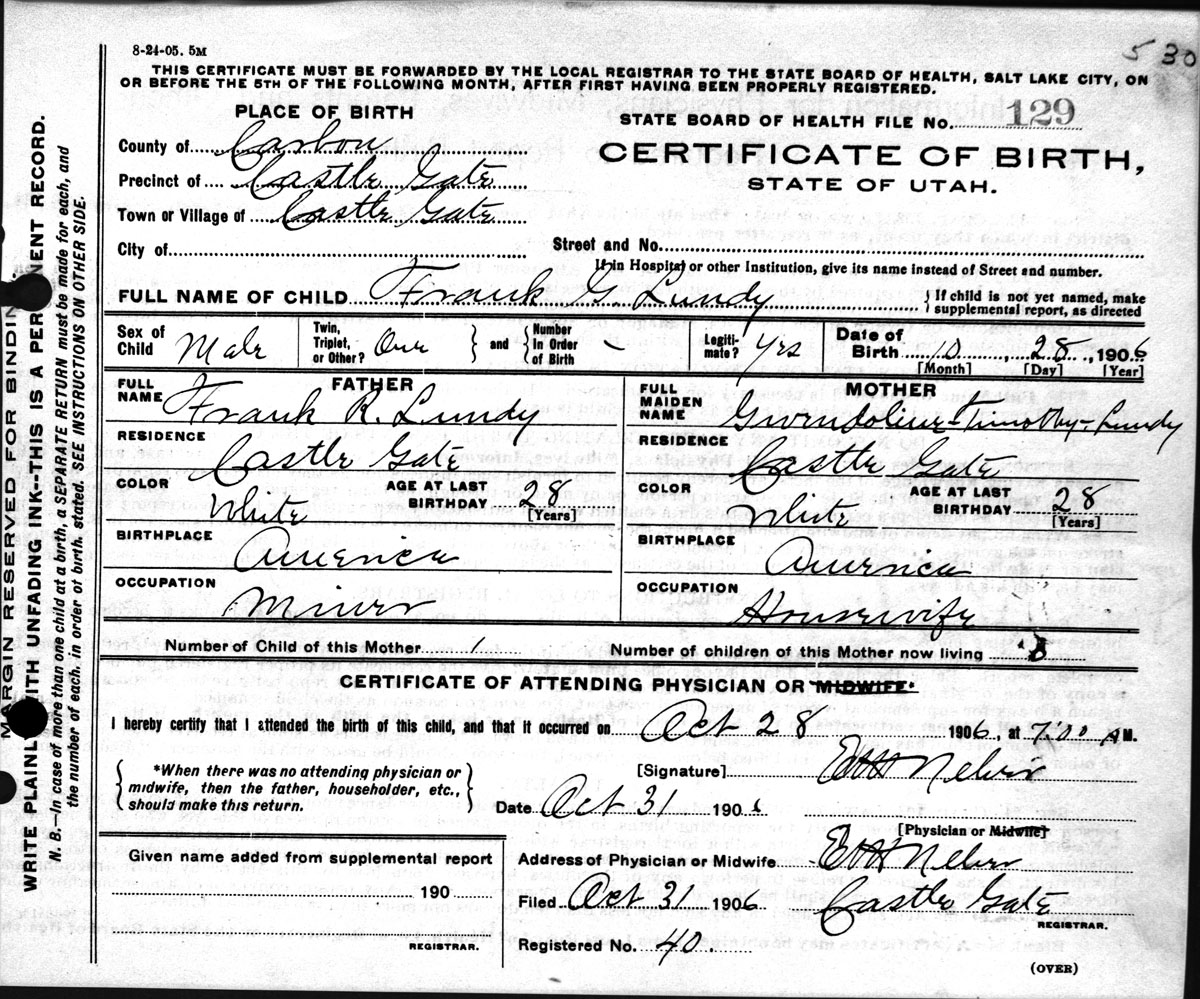 8-24-05. 5M
5 30
THIS CERTIFICATE MUST BE FORWARDED BY THE LOCAL REGISTRAR TO THE STATE BOARD OF HEALTH, SALT LAKE CITY, ON
OR BEFORE THE 5TH OF THE FOLLOWING MONTH, AFTER FIRST HAVING BEEN PROPERLY REGISTERED.
PLACE OF BIRTH
STATE BOARD OF HEALTH FILE No. 129
County of Carbon
CERTIFICATE OF BIRTH,
Precinct of Castle Gate
STATE OF UTAH.
Town or Village of Castle Gate
City of
Street and No.
If in Hospital or other Institution, give its name instead of Street and number.
FULL NAME OF CHILD Frank G. Lundy } If child is not yet named, make supplemental report, as directed
Sex of Child Male Twin, Triplet, or Other? One } and { Number In Order of Birth Legiti- mate? Yes Date of Birth 10, 28, 1906
[Month] [Day] [Year]
FATHER
FULL NAME Frank R. Lundy
RESIDENCE
Castle Gate
COLOR White AGE AT LAST BIRTHDAY 28
[Years]
BIRTHPLACE
America
OCCUPATION
Miner
MOTHER
FULL MAIDEN NAME Gwendoline-Timothy-Lundy
RESIDENCE
Castle Gate
COLOR White AGE AT LAST BIRTHDAY 28
[Years]
BIRTHPLACE
America
OCCUPATION
Housewife
Number of Child of this Mother 1 Number of children of this Mother now living
CERTIFICATE OF ATTENDING PHYSICIAN OR MIDWIFE.*
I hereby certify that I attended the birth of this child, and that it occurred on Oct 28 1906, at 7:00 AM.
{ *When there was no attending physician or
midwife, then the father, householder, etc.,
should make this return. }
[Signature]
Date Oct 31 1906
[Physician or Midwife]
Given name added from supplemental report
190
REGISTRAR.
Address of Physician or Midwife
Filed Oct 31 1906 Castle Gate
REGISTRAR.
Registered No. 40.
(OVER)
MARGIN RESERVED FOR BINDING.
WRITE PLAINLY WITH UNFADING INK--THIS IS A PERMANENT RECORD.
N. B.--In case of more than one child at a birth, a SEPARATE RETURN must be made for each, and
the number of each, in order of birth, stated. SEE INSTRUCTIONS ON OTHER SIDE.